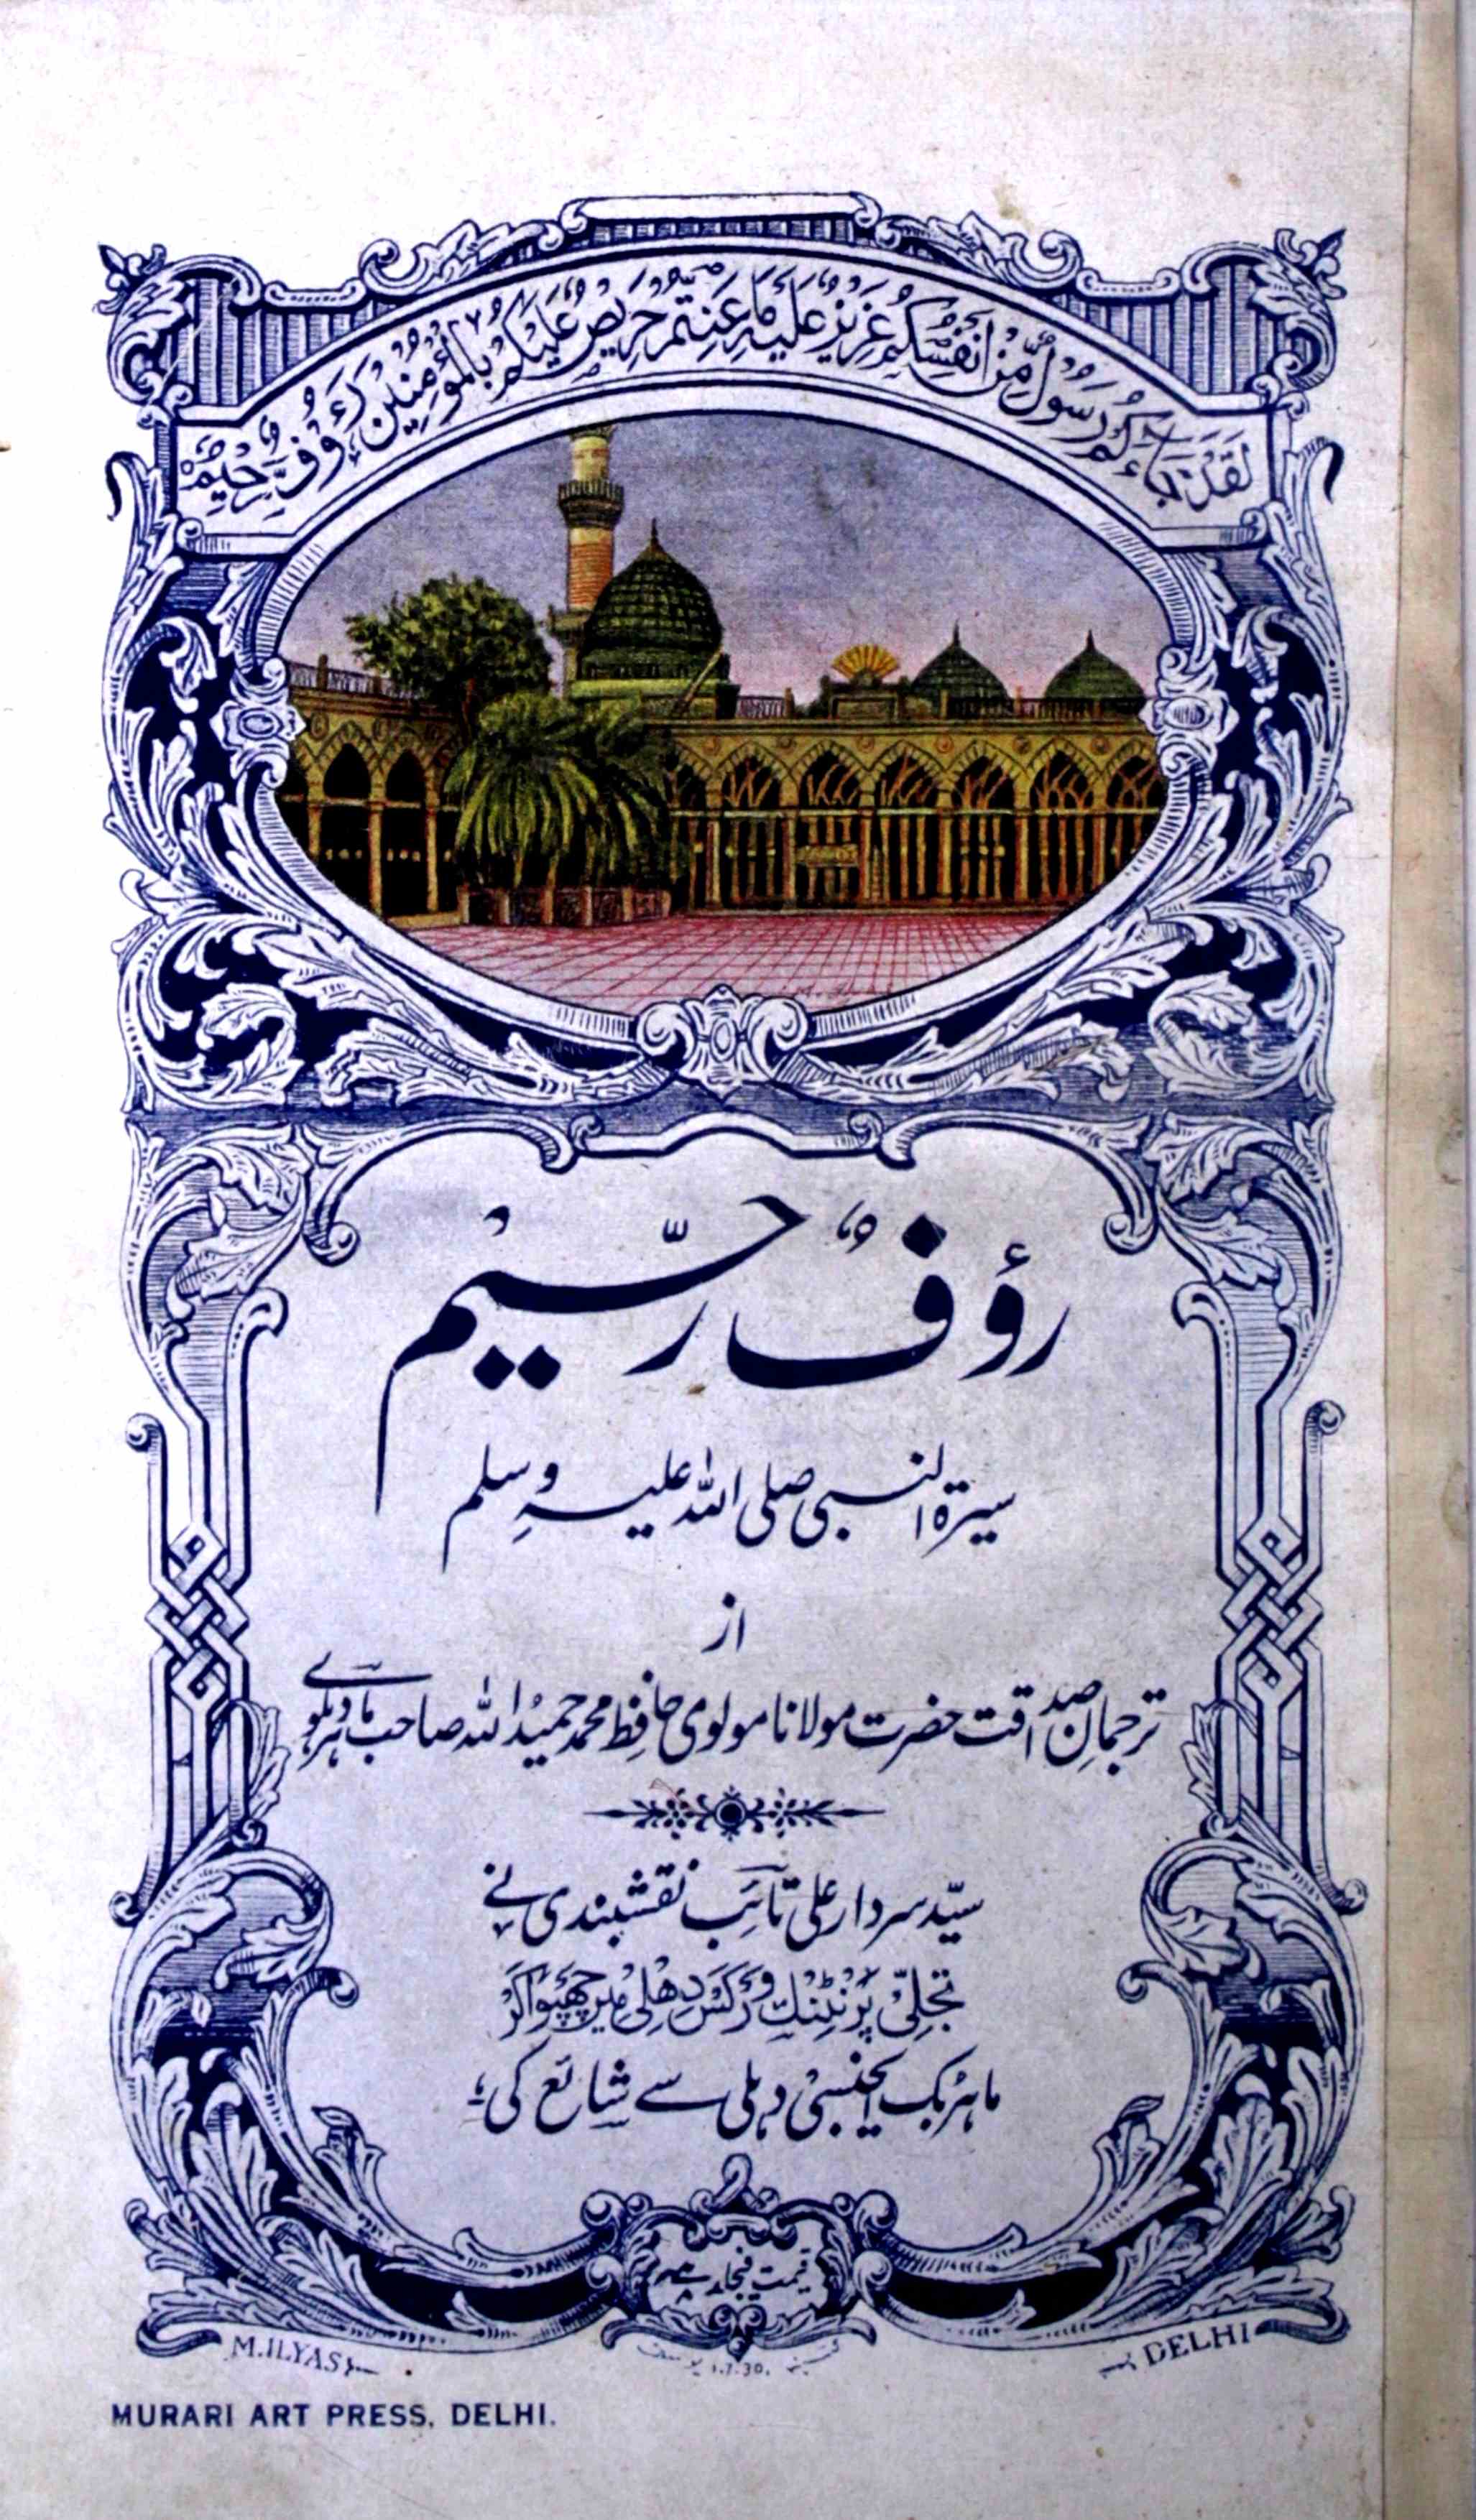 لَقَدْ جَاءَكُمْ رَسُولٌ مِّنْ أَنفُسِكُمْ عَزِيزٌ عَلَيْهِ مَا عَنِتُّمْ حَرِيصٌ عَلَيْكُم بِالْمُؤْمِنِينَ رَءُوفٌ رَّحِيمٌ
رؤفٌ رّحیمْ
سیرۃ النبی صلی اللہ علیہ وسلم
از
ترجمانِ صداقت حضرت مولانا مولوی حافظ محمد حمیدُ اللہ صاحب ماہر دہلوی
سیّد سردار علی تائب نقشبندی نے
تجلّی پرنٹنگ ورکس دھلی میں چھپوا کر
ماہر بک ایجنسی دہلی سے شائع کی؛
قیمت فیجلد
M.ILYAS DELHI
1.7.30.
MURARI ART PRESS, DELHI.